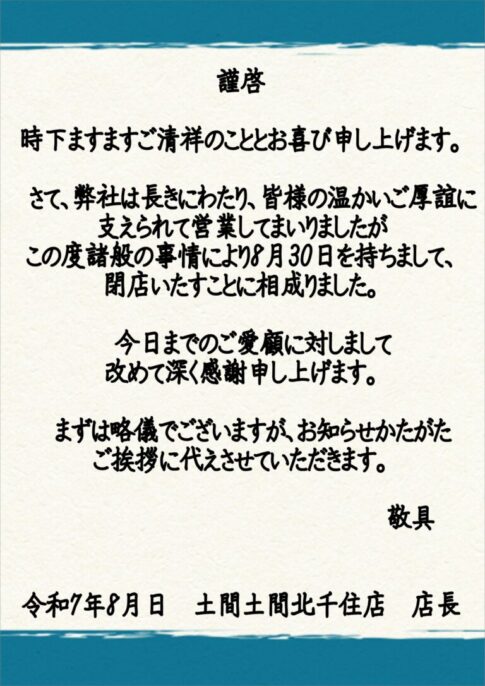 謹啓
時下ますますご清祥のこととお喜び申し上げます。
さて、弊社は長きにわたり、皆様の温かいご厚誼に
支えられて営業してまいりましたが
この度諸般の事情により8月30日を持ちまして、
閉店いたすことに相成りました。
今日までのご愛顧に対しまして
改めて深く感謝申し上げます。
まずは略儀でございますが、お知らせかたがた
ご挨拶に代えさせていただきます。
敬具
令和7年8月日　土間土間北千住店　店長